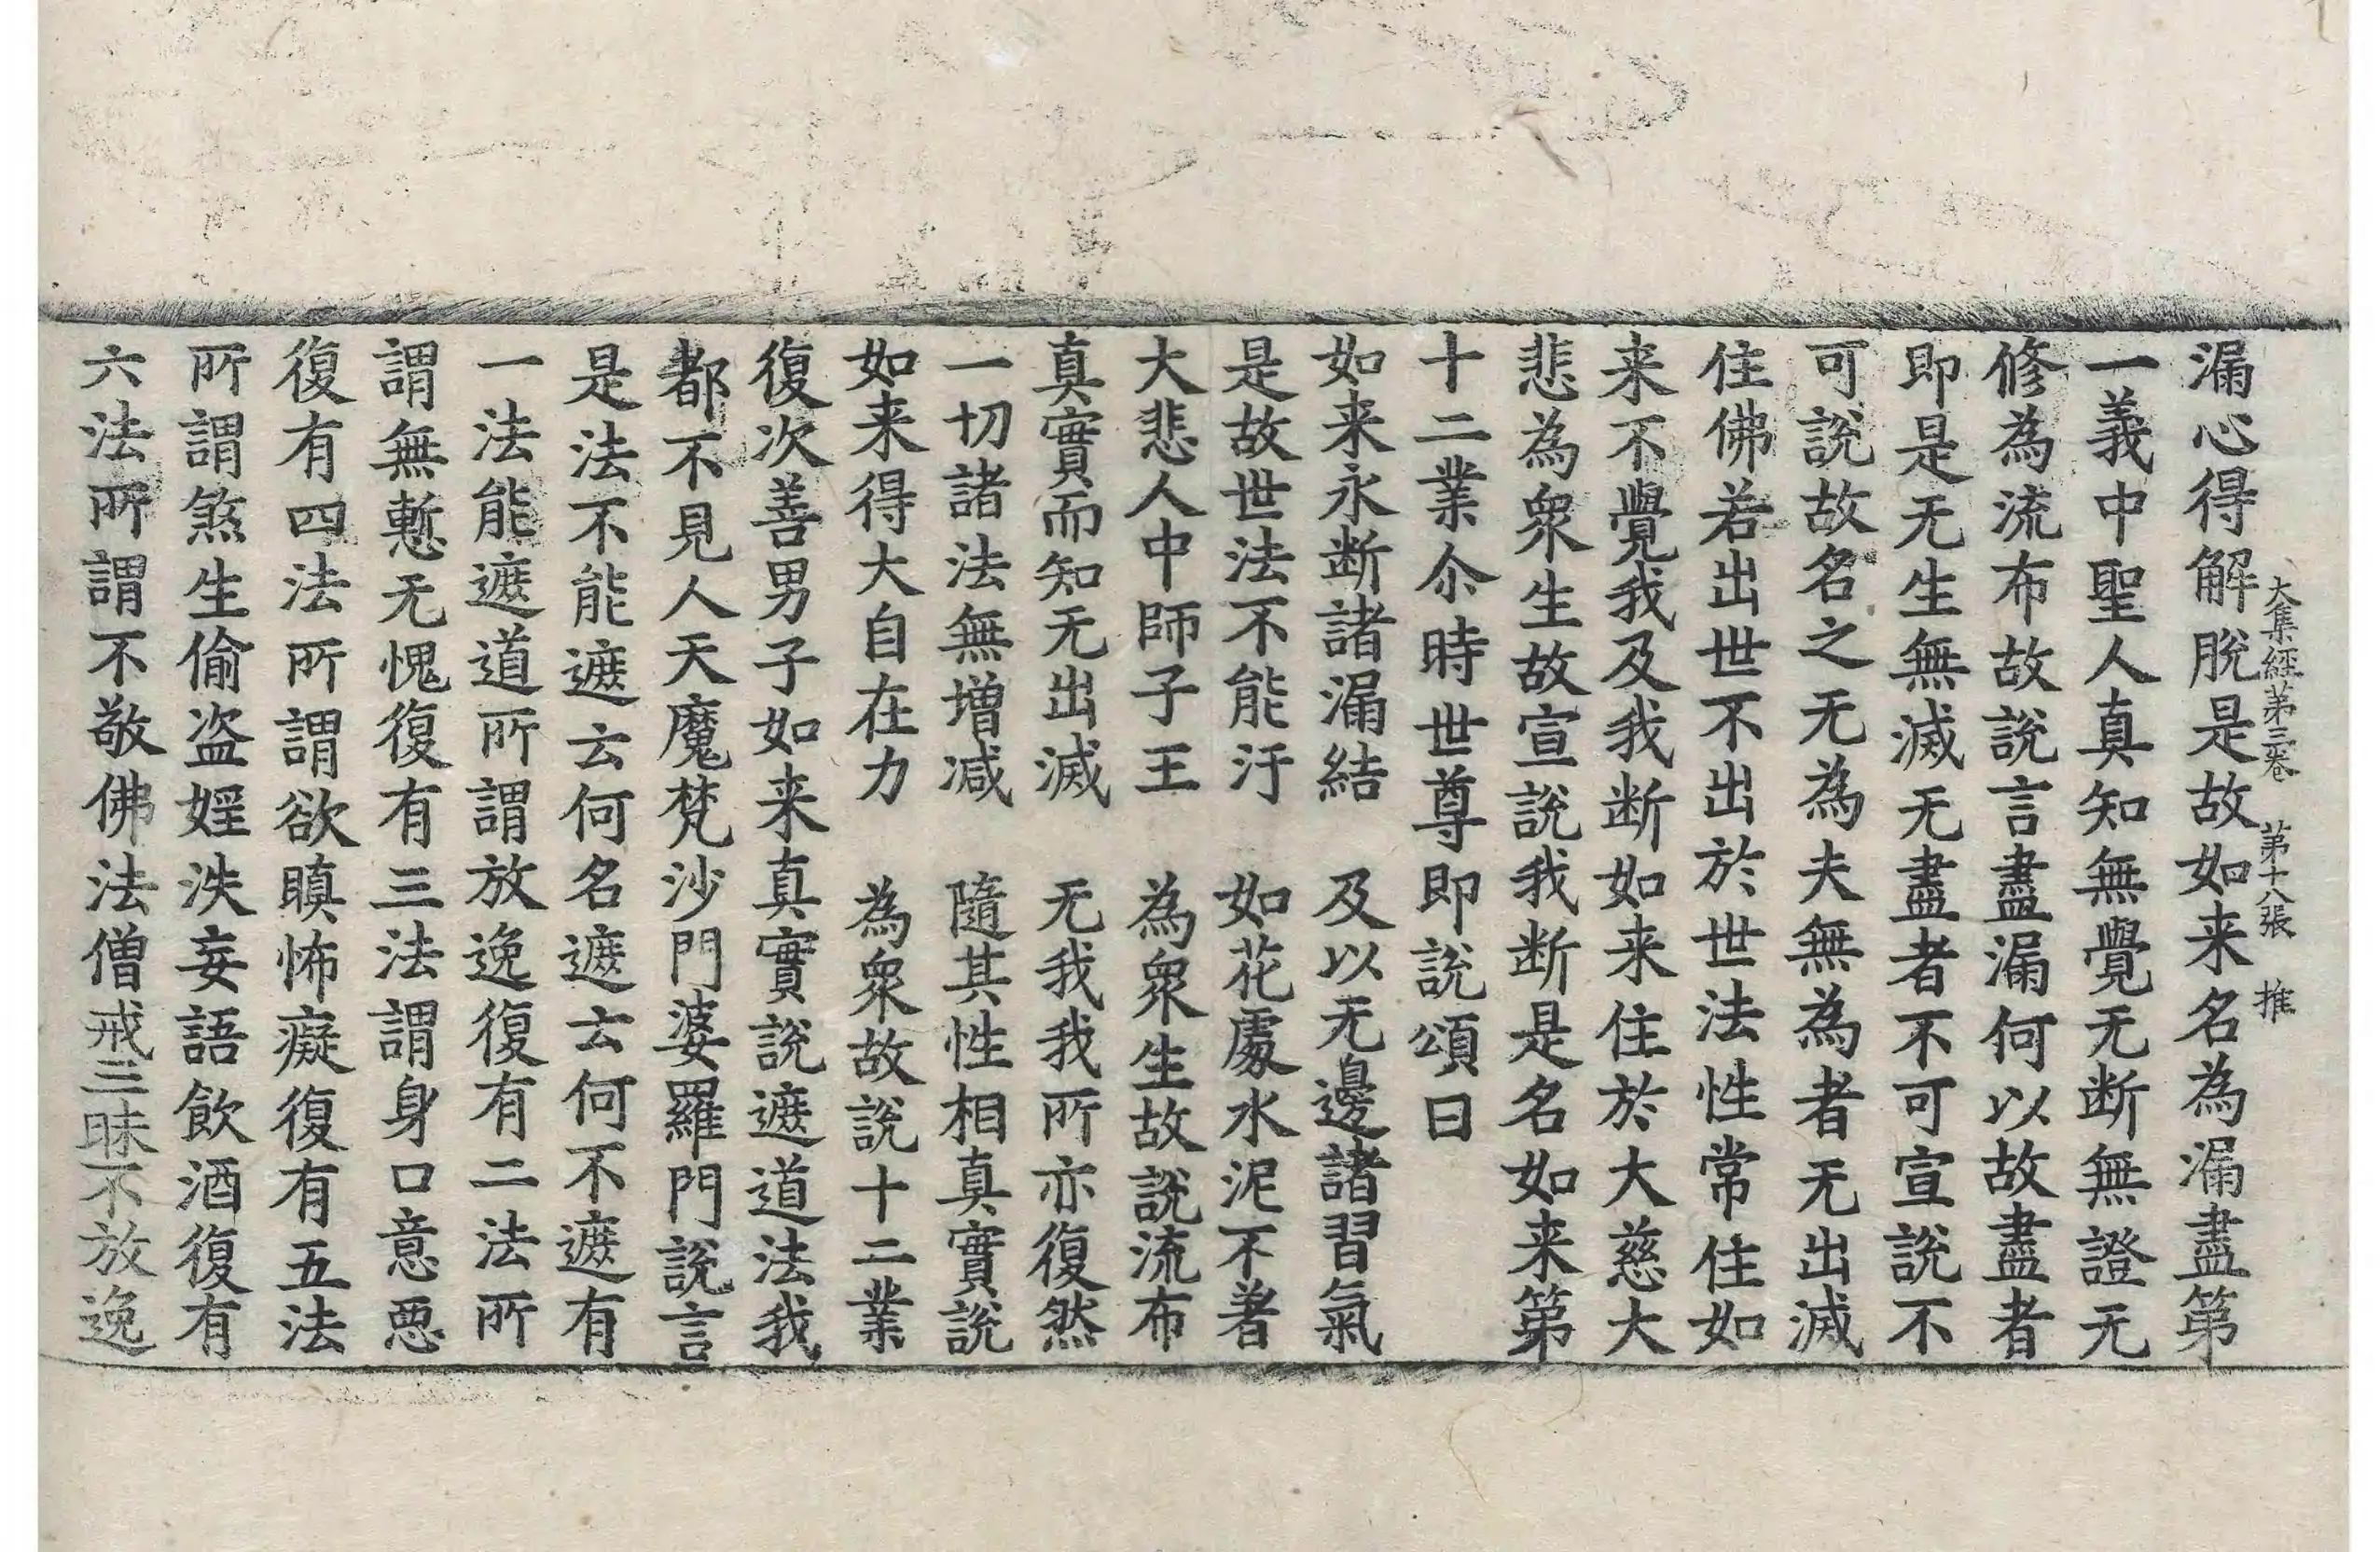 大集經第三卷 第十八張 推
漏心得解脫是故如来名為漏盡第
一義中聖人真知無覺无断無證无
修為流布故說言盡漏何以故盡者
即是无生無滅无盡者不可宣說不
可說故名之无為夫無為者无出滅
住佛若出世不出於世法性常住如
来不覺我及我断如来住於大慈大
悲為衆生故宣說我断是名如来第
十二業尒時世尊即說頌曰
如来永断諸漏結 及以无邊諸習氣
是故世法不能汙 如花處水泥不著
大悲人中師子王 為衆生故說流布
真實而知无出滅 无我我所亦復然
一切諸法無增减 隨其性相真實說
如来得大自在力 為衆故說十二業
復次善男子如来真實說遮道法我
都不見人天魔梵沙門婆羅門說言
是法不能遮云何名遮云何不遮有
一法能遮道所謂放逸復有二法所
謂無慙无愧復有三法謂身口意惡
復有四法所謂欲瞋怖癡復有五法
所謂煞生偷盗婬泆妄語飲酒復有
六法所謂不敬佛法僧戒三昧不放逸